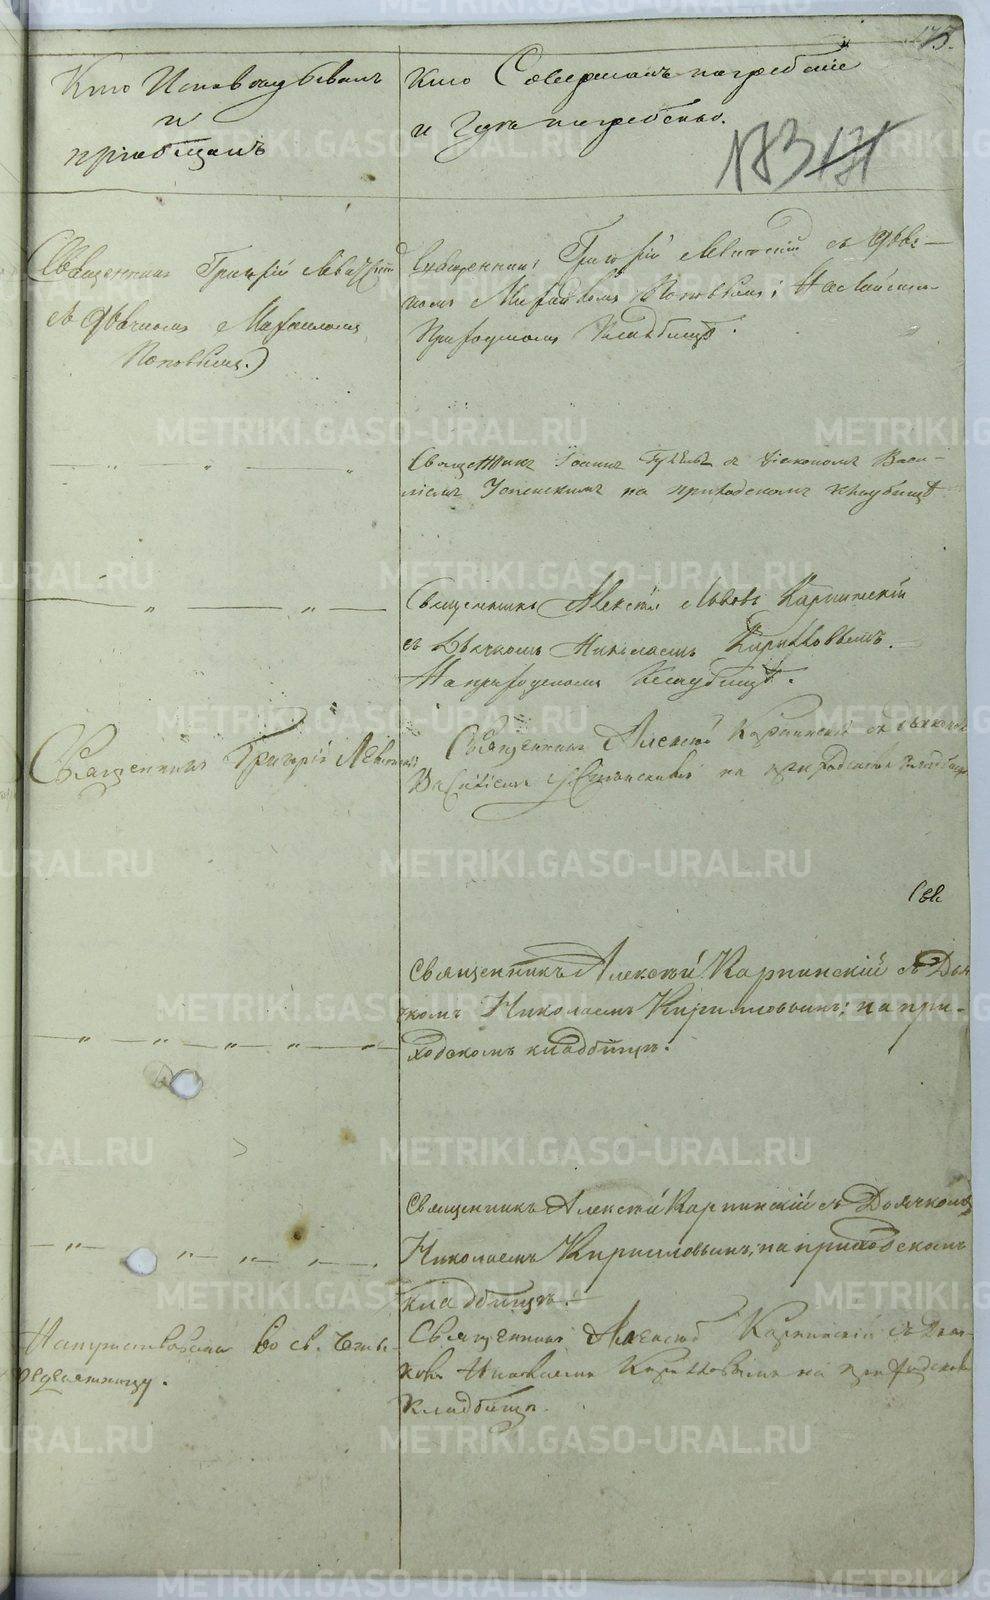 173.
Кто Исповѣдывалъ
и
приобщалъ
Кто Совершалъ погребенiе
и гдѣ погребены.
183
Священникъ Григорiй Левитскiй
съ дьячкомъ Михаиломъ
Поповымъ.)
Священникъ Григорiй Левитскiй съ дьяч-
комъ Михаиломъ Поповымъ; На
Приходскомъ Кладбищѣ.
— „ „ „
Священникъ Iоаннъ съ дiакономъ Васи-
лiемъ Успенскимъ на приходскомъ кладбищѣ
— „ — „ —
Священникъ Алексѣй Львовъ Карпинскiй
съ Дьячкомъ Николаемъ Кирилловымъ.
На приходскомъ Кладбищѣ.
Священникъ Григорiй Левитскiй
Священникъ Алексѣй Карпинскiй съ
Василiемъ Успенскимъ на приходскомъ кладбищѣ
Свя.
Священникъ Алексѣй Карпинскiй съ Дья-
чкомъ Николаемъ Кирилловымъ; на при-
ходскомъ кладбищѣ.
— „ — „ — „ — „ —
Священникъ Алексѣй Карпинскiй съ Дьячкомъ
Николаемъ Кирилловымъ; на приходскомъ
кладбищѣ.
— „ — „ — „ — „ — .
Напутствована во св.
Священникъ Алексѣй Карпинскiй съ Дьяч-
комъ Николаемъ Кирилловымъ на приходскомъ
Кладбищѣ.
METRIKI.GASO-URAL.RU